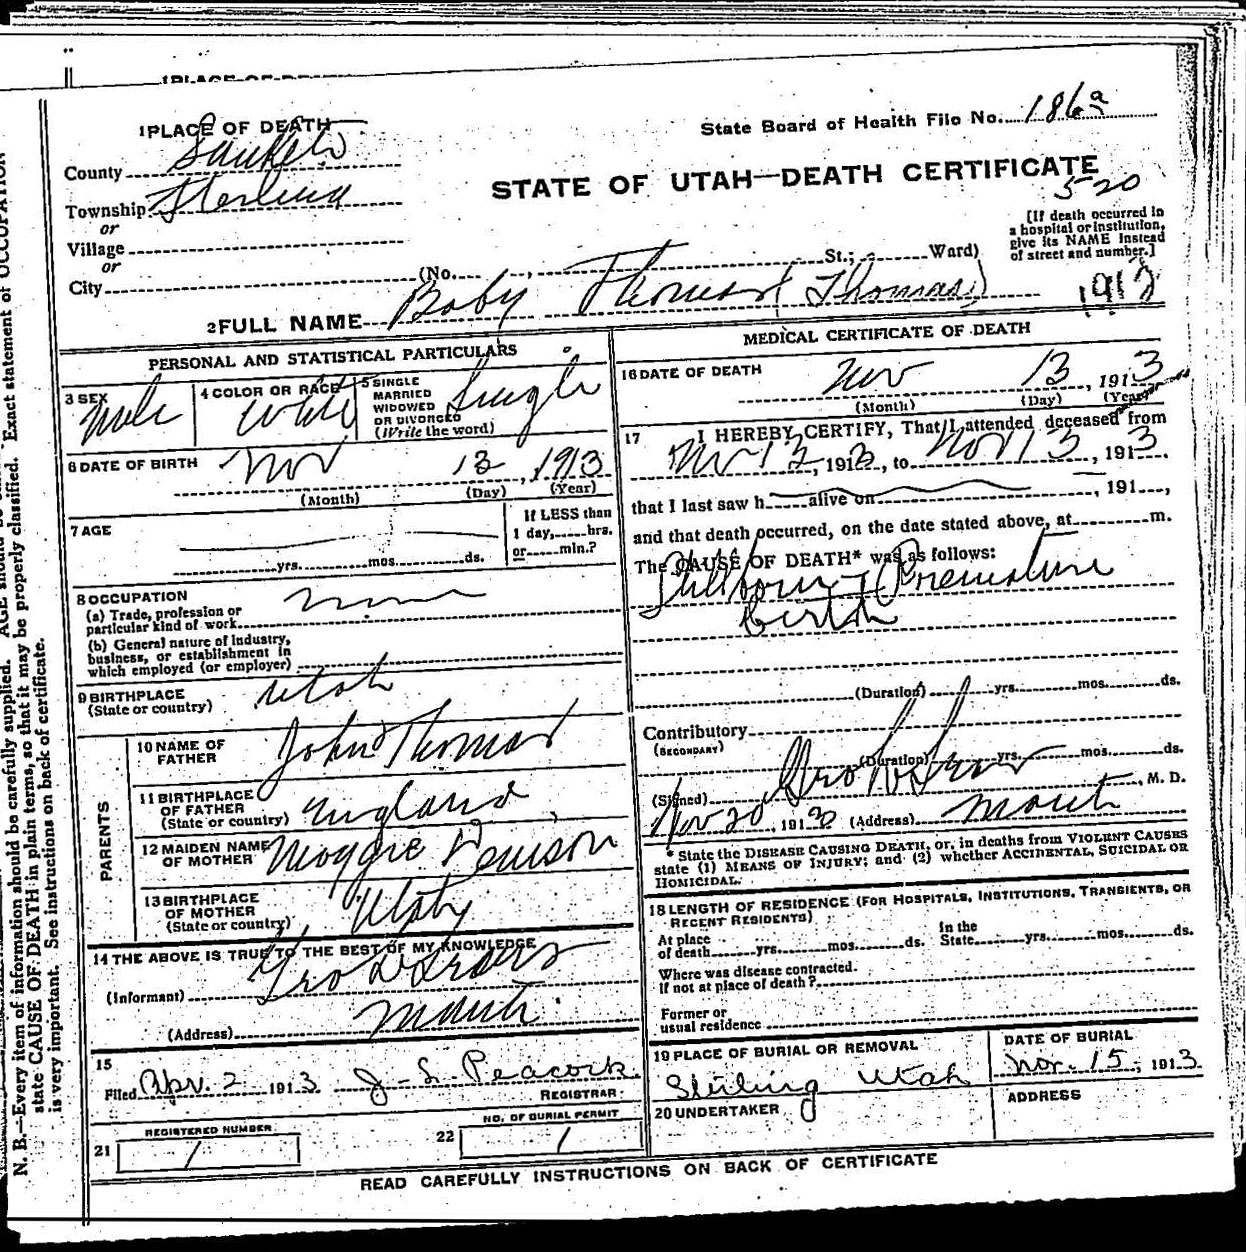 1 PLACE OF DEATH
State Board of Health File No. 186a
County Sanpete
STATE OF UTAH—DEATH CERTIFICATE
520
Township Sterling
or
Village
or
City
(No. , St.; Ward)
[If death occurred in
a hospital or institution,
give its NAME instead
of street and number.]
2 FULL NAME Baby Thomas (Thomas)
PERSONAL AND STATISTICAL PARTICULARS
3 SEX Male
4 COLOR OR RACE White
5 SINGLE
MARRIED
WIDOWED
OR DIVORCED
(Write the word) Single
6 DATE OF BIRTH Nov 13, 1913
(Month) (Day) (Year)
7 AGE
yrs. mos. ds.
If LESS than
1 day, hrs.
or min.?
8 OCCUPATION
(a) Trade, profession or
particular kind of work
(b) General nature of industry,
business, or establishment in
which employed (or employer)
9 BIRTHPLACE
(State or country) Utah
PARENTS
10 NAME OF
FATHER John Thomas
11 BIRTHPLACE
OF FATHER
(State or country) England
12 MAIDEN NAME
OF MOTHER Maggie Denison
13 BIRTHPLACE
OF MOTHER
(State or country) Utah
14 THE ABOVE IS TRUE TO THE BEST OF MY KNOWLEDGE
(Informant) Geo
(Address) Manti
15
Filed Apr. 2 1913 J. L. Peacock
REGISTRAR
REGISTERED NUMBER
21 1
NO. OF BURIAL PERMIT
22 1
MEDICAL CERTIFICATE OF DEATH
16 DATE OF DEATH Nov 13, 1913
(Month) (Day) (Year)
17 I HEREBY CERTIFY, That I attended deceased from
Nov 13, 1913, to Nov 13, 1913.
that I last saw h alive on , 191 ,
and that death occurred, on the date stated above, at m.
The CAUSE OF DEATH* was as follows:
Stillborn - Premature
birth
(Duration) yrs. mos. ds.
Contributory
(SECONDARY)
(Duration) yrs. mos. ds.
(Signed) Geo , M. D.
Nov 20, 1913 (Address) Manti
* State the DISEASE CAUSING DEATH, or, in deaths from VIOLENT CAUSES
state (1) MEANS OF INJURY; and (2) whether ACCIDENTAL, SUICIDAL OR
HOMICIDAL.
18 LENGTH OF RESIDENCE (FOR HOSPITALS, INSTITUTIONS, TRANSIENTS, OR
RECENT RESIDENTS)
At place
of death yrs. mos. ds.
In the
State yrs. mos. ds.
Where was disease contracted.
If not at place of death?
Former or
usual residence
19 PLACE OF BURIAL OR REMOVAL
Sterling Utah
DATE OF BURIAL
Nov. 15, 1913
20 UNDERTAKER
ADDRESS
READ CAREFULLY INSTRUCTIONS ON BACK OF CERTIFICATE
N. B.—Every item of information should be carefully supplied.
state CAUSE OF DEATH in plain terms, so that it may be properly classified. Exact statement of OCCUPATION
is very important. See instructions on back of certificate.